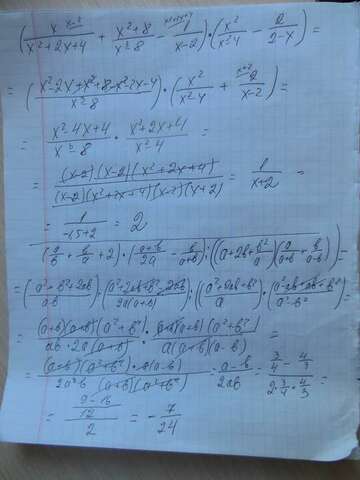 (x^(x-2)/(x²+2x+4) + (x²+8)/(x³-8) - 1/(x-2)) · (x²/(x²-4) - 2/(2-x)) =
= ((x²-2x+x²+8-x²-2x-4)/(x³-8)) · (x²/(x²-4) + 2^(x+2)/(x-2)) =
= (x²-4x+4)/(x³-8) · (x²+2x+4)/(x²-4) =
= ((x-2)(x-2)(x²+2x+4))/((x-2)(x²+2x+4)(x-2)(x+2)) = 1/(x+2) =
= 1/(-1,5+2) = 2
(a/b + b/a + 2) · ((a+b)/2a - b/(a+b)) : ((a+2b+b²/a)(a/(a+b) + b/(a-b))) =
= ((a²+b²+2ab)/ab) · ((a²+2ab+b²-2ab)/2a(a+b)) : ((a²+2ab+b²)/a) · ((a²-ab+ab+b²)/(a²-b²)) =
= ((a+b)(a+b)(a²+b²))/(ab·2a(a+b)) : ((a+b)(a+b)(a²+b²))/(a(a+b)(a-b)) =
= ((a+b)(a²+b²)·a(a-b))/(2a²b(a+b)(a²+b²)) = (a-b)/2ab = (3/4 - 4/3)/(2·3/4·4/3) =
= ((9-16)/12)/2 = -7/24